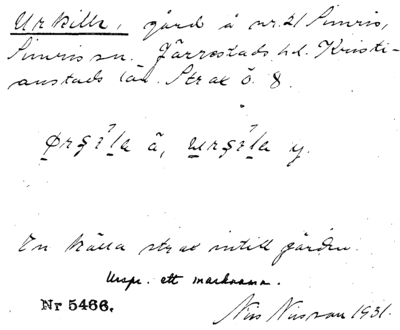 Urkilla, gård å nr. 21 Simris,
Simris sn. Järrestads hd. Kristi-
anstads län. Strax ö. 8.
ørʂila ä, urʂila y.
En källa strax intill gården.
Urspr. ett marknamn.
Nr 5466.
Nils Nilsson 1931.